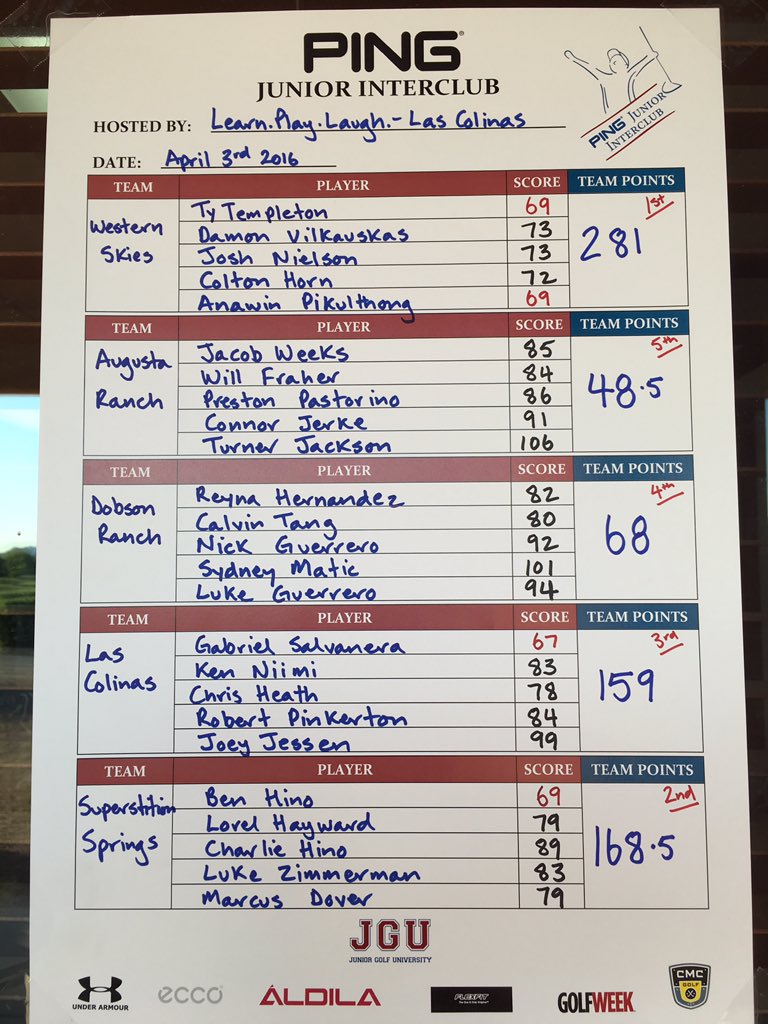 PING®
JUNIOR INTERCLUB
PING JUNIOR
INTERCLUB
HOSTED BY: Learn.Play.Laugh.- Las Colinas
DATE: April 3rd 2016
TEAM PLAYER SCORE TEAM POINTS
Western Skies Ty Templeton 69 281 1st
Damon Vilkauskas 73
Josh Nielson 73
Colton Horn 72
Anawin Pikulthong 69
TEAM PLAYER SCORE TEAM POINTS
Augusta Ranch Jacob Weeks 85 48.5 5th
Will Fraher 84
Preston Pastorino 86
Connor Jerke 91
Turner Jackson 106
TEAM PLAYER SCORE TEAM POINTS
Dobson Ranch Reyna Hernandez 82 68 4th
Calvin Tang 80
Nick Guerrero 92
Sydney Matic 101
Luke Guerrero 94
TEAM PLAYER SCORE TEAM POINTS
Las Colinas Gabriel Salvanera 67 159 3rd
Ken Niimi 83
Chris Heath 78
Robert Pinkerton 84
Joey Jessen 99
TEAM PLAYER SCORE TEAM POINTS
Superstition Springs Ben Hino 69 168.5 2nd
Lovel Hayward 79
Charlie Hino 89
Luke Zimmerman 83
Marcus Dover 79
JGU
JUNIOR GOLF UNIVERSITY
UNDER ARMOUR ecco ALDILA FLEXFIT GOLFWEEK CMC GOLF